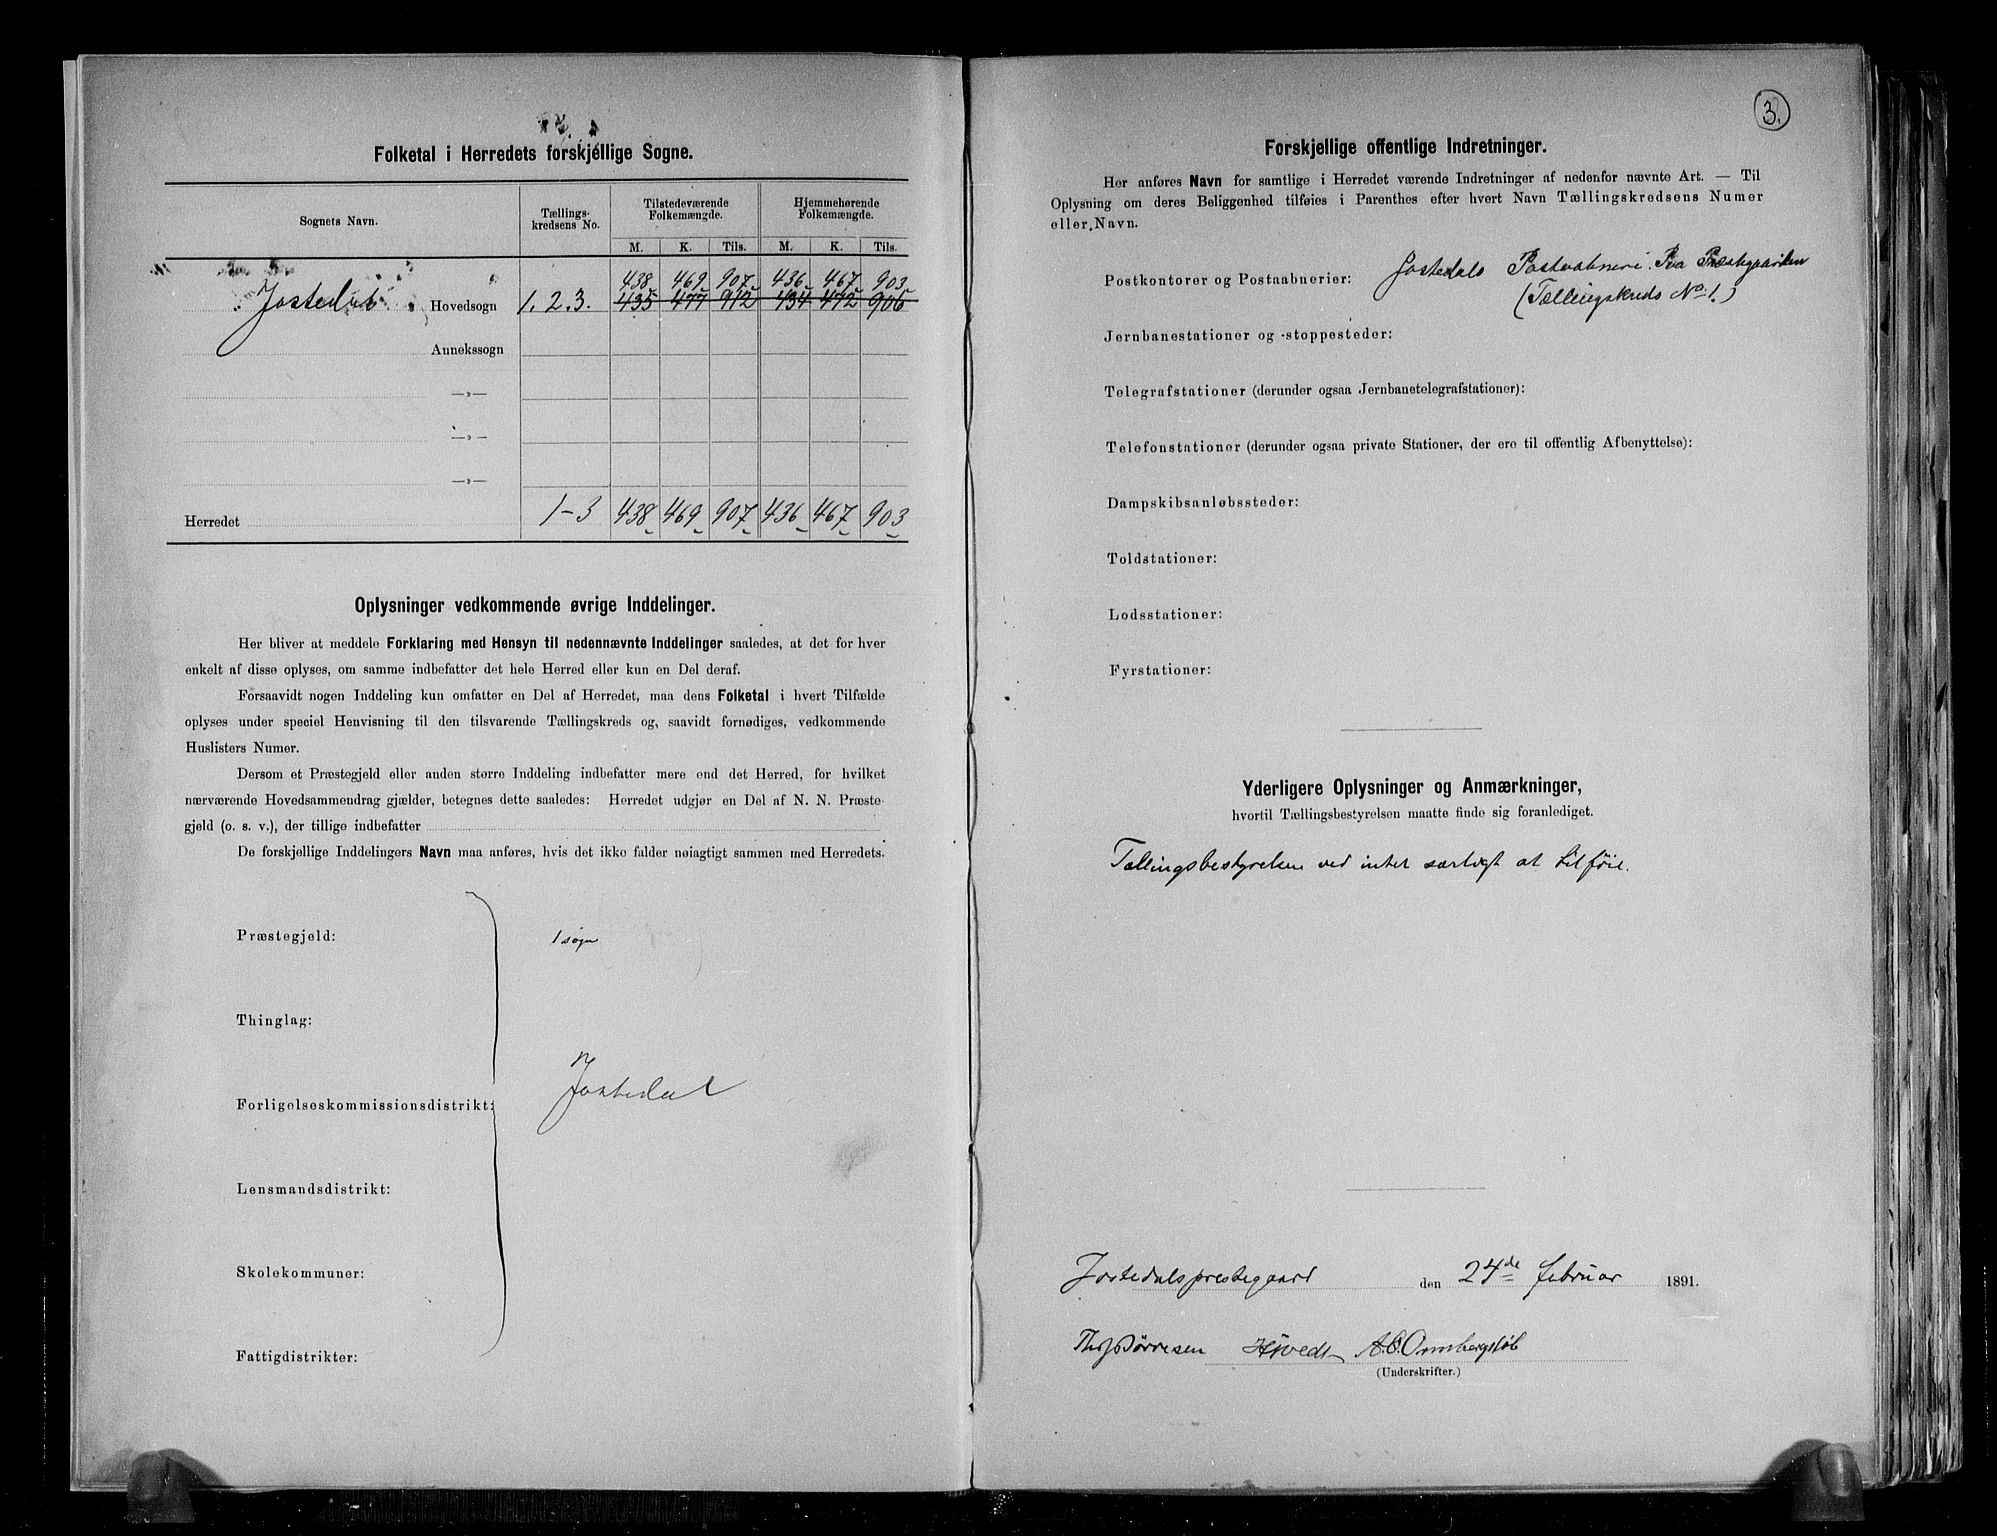 Folketal i Herredets forskjellige Sogne.
Sognets Navn.
Tællings-
kredsens No.
Tilstedeværende
Folkemængde.
Hjemmehørende
Folkemængde.
M. K. Tils. M. K. Tils.
438 469 907 436 467 903
Jostedal Hovedsogn 1. 2. 3. 435 477 912 434 472 906
Annekssogn
—„—
—„—
—„—
Herredet 1-3 438 469 907 436 467 903
Oplysninger vedkommende øvrige Inddelinger.
Her bliver at meddele Forklaring med Hensyn til nedennævnte Inddelinger saaledes, at det for hver
enkelt af disse oplyses, om samme indbefatter det hele Herred eller kun en Del deraf.
Forsaavidt nogen Inddeling kun omfatter en Del af Herredet, maa dens Folketal i hvert Tilfælde
oplyses under speciel Henvisning til den tilsvarende Tællingskreds og, saavidt fornødiges, vedkommende
Huslisters Numer.
Dersom et Præstegjeld eller anden større Inddeling indbefatter mere end det Herred, for hvilket
nærværende Hovedsammendrag gjælder, betegnes dette saaledes: Herredet udgjør en Del af N. N. Præste-
gjeld (o. s. v.), der tillige indbefatter
De forskjellige Inddelingers Navn maa anføres, hvis det ikke falder nøiagtigt sammen med Herredets.
Præstegjeld: 1 sogn
Thinglag:
Jostedal
Forligelseskommissionsdistrikt:
Lensmandsdistrikt:
Skolekommuner:
Fattigdistrikter:
3.
Forskjellige offentlige Indretninger.
Her anføres Navn for samtlige i Herredet værende Indretninger af nedenfor nævnte Art. — Til
Oplysning om deres Beliggenhed tilføies i Parenthes efter hvert Navn Tællingskredsens Numer
eller Navn.
Postkontorer og Postaabnerier: Jostedals Postaabneri. Paa Præstegaarden
(Tællingskreds No 1.)
Jernbanestationer og -stoppesteder:
Telegrafstationer (derunder ogsaa Jernbanetelegrafstationer):
Telefonstationer (derunder ogsaa private Stationer, der ere til offentlig Afbenyttelse):
Dampskibsanløbssteder:
Toldstationer:
Lodsstationer:
Fyrstationer:
Yderligere Oplysninger og Anmærkninger,
hvortil Tællingsbestyrelsen maatte finde sig foranlediget.
Tællingsbestyrelsen ved intet særligt at tilføie.
Jostedalsprestegaard den 24de februar 1891.
(Underskrifter.)